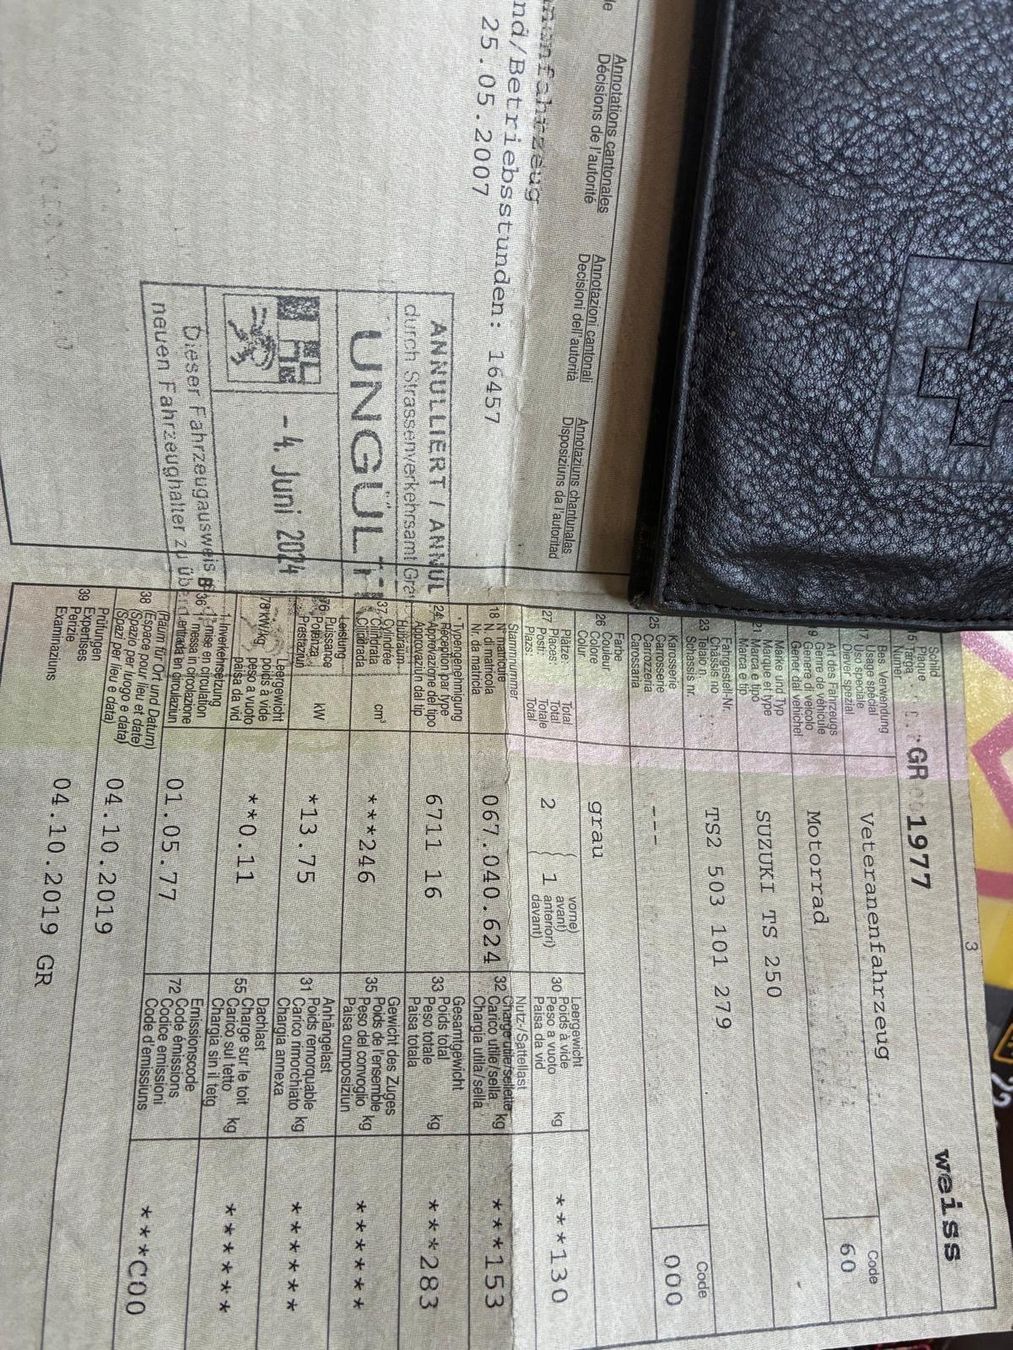 Annotations cantonales
Décisions de l'autorité
Annotazioni cantonali
Decisioni dell'autorità
Annotaziuns chantunalas
Disposiziuns da l'autoritad
nd/Betriebsstunden: 16457
25.05.2007
ANNULLIERT / ANNUL
durch Strassenverkehrsamt Gra
UNGÜLT
- 4. Juni 2024
Dieser Fahrzeugausweis
neuen Fahrzeughalter zu
3
15 Schild
Plaque
Targa
GR 1977
weiss
Bes. Verwendung
17 Usage spécial
Uso speciale
Diever spezial
Veteranenfahrzeug
Code
60
Art des Fahrzeugs
19 Genre de véhicule
Genere di veicolo
Gener dal vehichel
Motorrad
Marke und Typ
21 Marque et type
Marca e tipo
Marca e tip
SUZUKI TS 250
Fahrgestell-Nr.
23 Châssis no
Telaio n.
Schassis nr.
TS2 503 101 279
Karosserie
25 Carrosserie
Carrozzeria
Carossaria
---
Code
000
Farbe
26 Couleur
Colore
Colur
grau
Plätze:
27 Places:
Posti:
Plazs:
Total
Total
Totale
Total
2
1
vorne)
avant)
anteriori)
davant)
Leergewicht
30 Poids à vide
Peso a vuoto
Paisa da vid
kg
***130
Stammnummer
18 N° matricule
N. di matricola
Nr. da matricla
067.040.624
Nutz-/Sattellast
32 Charge utile/sellette
Carico utile/sella
Chargia utila/sella
kg
***153
Typengenehmigung
24 Réception par type
Approvazione del tipo
Approvaziun dal tip
6711 16
Gesamtgewicht
33 Poids total
Peso totale
Paisa totala
kg
***283
Hubraum
37 Cylindrée
Cilindrata
Cilindrada
cm³
***246
Gewicht des Zuges
35 Poids de l'ensemble
Peso del convoglio
Paisa cumposiziun
kg
******
Leistung
76 Puissance
Potenza
Prestaziun
kW
*13.75
Anhängelast
31 Poids remorquable
Carico rimorchiato
Chargia annexa
kg
******
78 kW/kg
Leergewicht
poids à vide
peso a vuoto
paisa da vid
**0.11
Dachlast
55 Charge sur le toit
Carico sul tetto
Chargia sin il tetg
kg
******
36 1. Inverkehrsetzung
1re mise en circulation
1a messa in circolazione
1. entrada en circulaziun
01.05.77
Emissionscode
72 Code émissions
Codice emissioni
Code d'emissiuns
***C00
38 (Raum für Ort und Datum)
(Espace pour lieu et date)
(Spazio per luogo e data)
(Spazi per lieu e data)
04.10.2019
39 Prüfungen
Expertises
Perizie
Examinaziuns
04.10.2019 GR